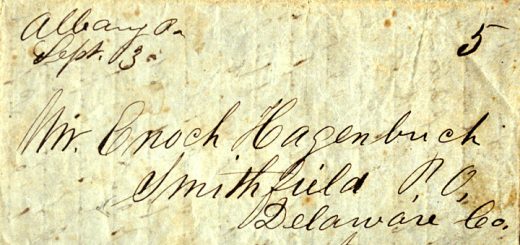 Albany Pa.
Sept. 3. 5
Mr. Enoch Hagenbuch
Smithfield P. O,
Delaware Co.